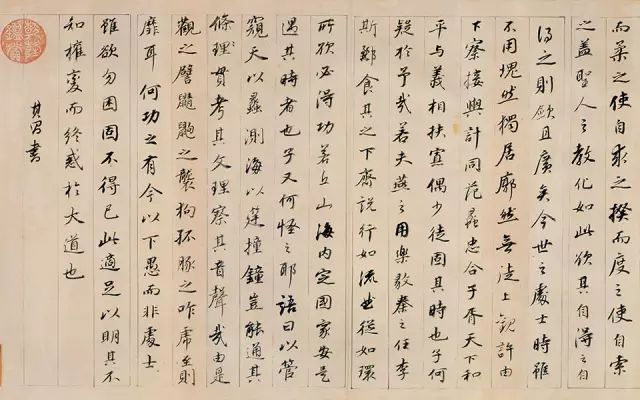 而柔之使自求之揆而度之使自索
之盖聖人之教化如此欲其自得之自
得之則敏且廣矣今世之處士時雖
不用塊然獨居廓然無徒上觀許由
下察接輿計同范蠡忠合子胥天下和
平与義相扶寡偶少徒固其時也子何
疑於予哉若夫燕之用樂毅秦之任李
斯酈食其之下齊説行如流曲從如環
所欲必得功若丘山海内定國家安是
遇其時者也子又何怪之耶語曰以管
窺天以蠡測海以莛撞鐘豈能通其
條理貫考其文理察其音聲哉由是
觀之譬鼱鼩之襲狗孤豚之咋虎至則
靡耳何功之有今以下愚而非處士
雖欲勿困固不得已此適足以明其不
知權變而終惑於大道也
其昌書